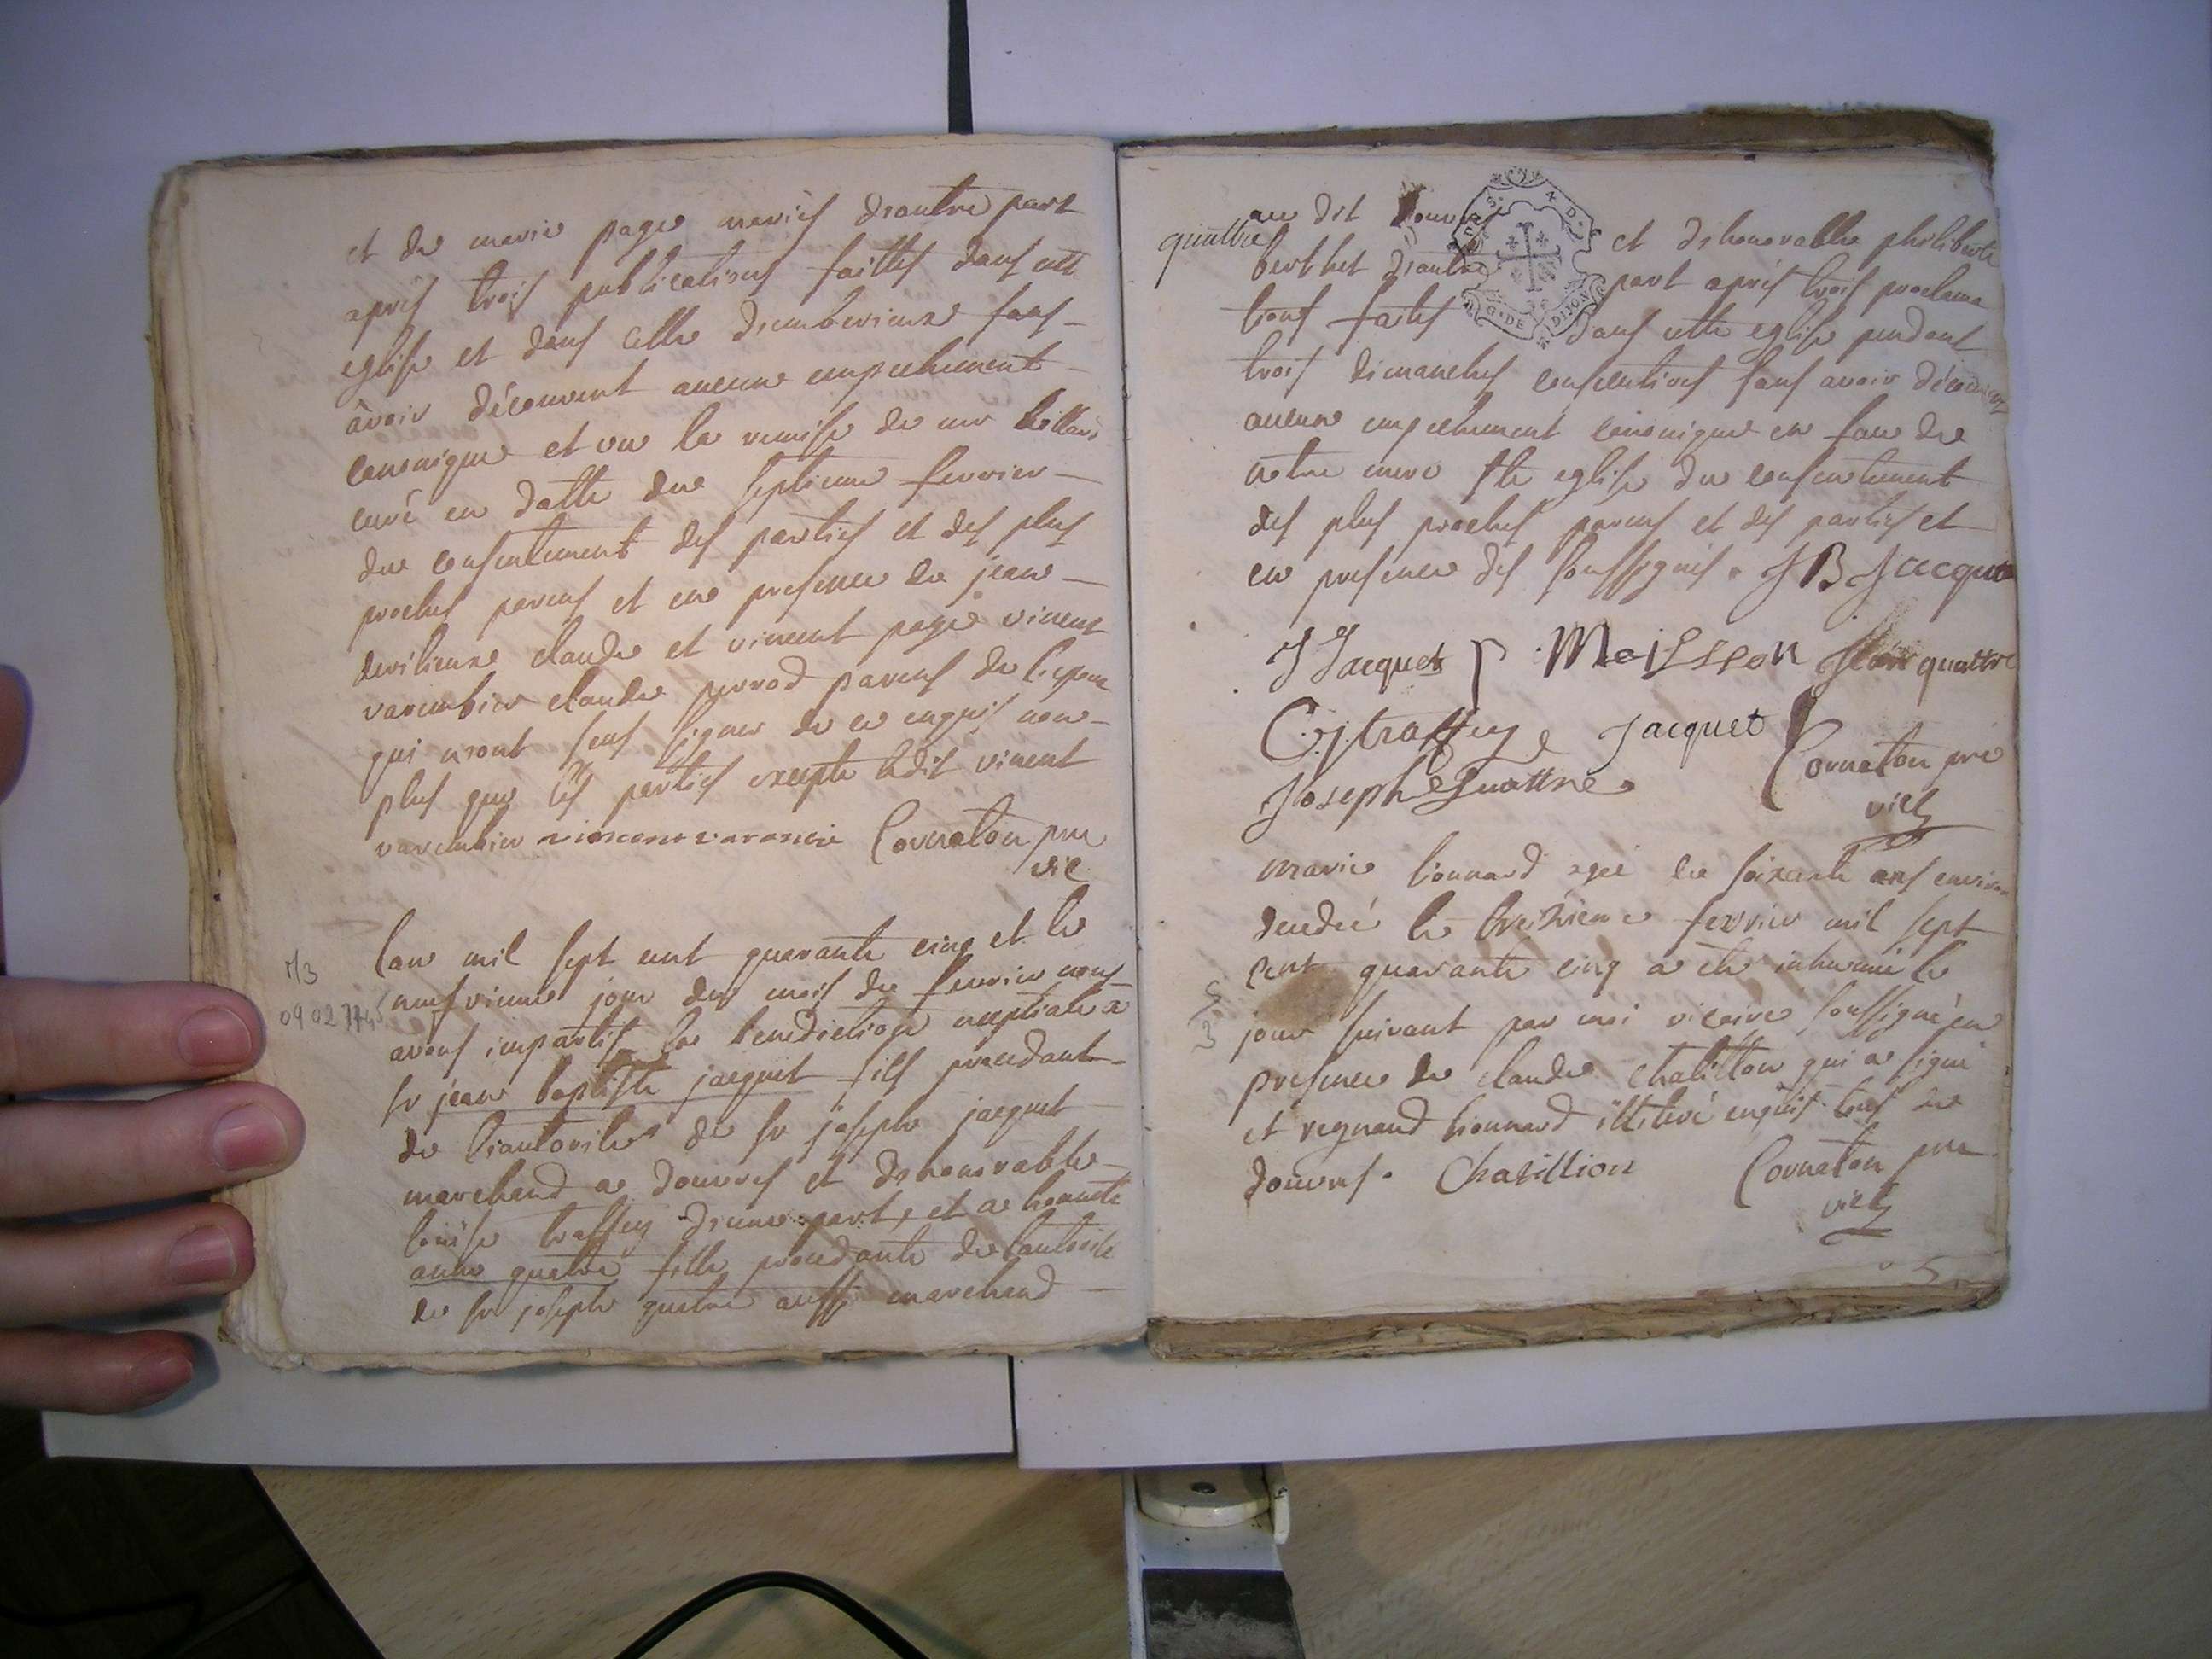 et de marie page mariés d'autre part
après trois publications faittes dans cette
eglise et dans celle d'ambericux sans
avoir découvert aucune empechement
canonique et vu la remise de mr
curé en datte du septieme fevrier
du consentement des parties et des plus
proches parens et en presence de jean
claude et vincent page vincent
varembier claude perrod parens de l'epoux
qui n'ont seus signer de ce enquis non
plus que les parties excepté ledit vincent
varembier vincent varambie Cornaton pre
vic
M3
09 02 1745
L'an mil sept cent quarante cinq et le
neufvieme jour du mois de fevrier nous
avons impartis la benediction nuptiale a
sr jean baptiste jacquet fils procedant
de l'authorité de sr joseph jacquet
marchand a douvres et d'honorable
louise traffey d'une part, et a honnete
anne quatre fille procedante de l'autorité
de sr joseph quatre aussi marchand
au dit Douvres et d'honorable philiberte
quattre
berthet d'autre part après trois proclama
tions faites dans cette eglise pendant
trois dimanches consecutives sans avoir découvert
aucune empechement canonique en face de
notre mere ste eglise du consentement
des plus proches parens et des parties et
en presence des soussignés. JB Jacquet
J Jacquet Moisson Jean quattre
C j traffey Jacquet
Joseph Quattre Cornaton pre
vic
marie lionnard agée de soixante ans environ
decedée le treizieme fevrier mil sept
cent quarante cinq a été inhumée le
S
3
jour suivant par moi vicaire soussigné en
presence de claude chatillon qui a signé
et regnaud lionnard illiteré enquis tous de
douvres. Chatillion Cornaton pre
vic